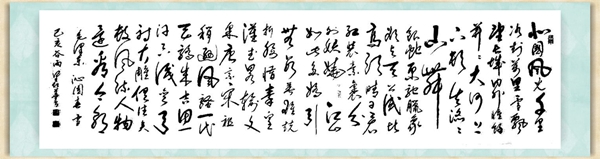 北国风光千里
冰封万里雪飘
望长城内外惟余
莽莽大河上
下顿失滔滔
山舞
银蛇原驰蜡象
欲与天公试比
高须晴日看
红装素裹分
外妖娆江山
如此多娇引
无数英雄竞
折腰惜秦皇
汉武略输文
采唐宗宋祖
稍逊风骚一代
天骄成吉思
汗只识弯弓
射大雕俱往矣
数风流人物
还看今朝
毛泽东 沁园春雪
己亥谷雨